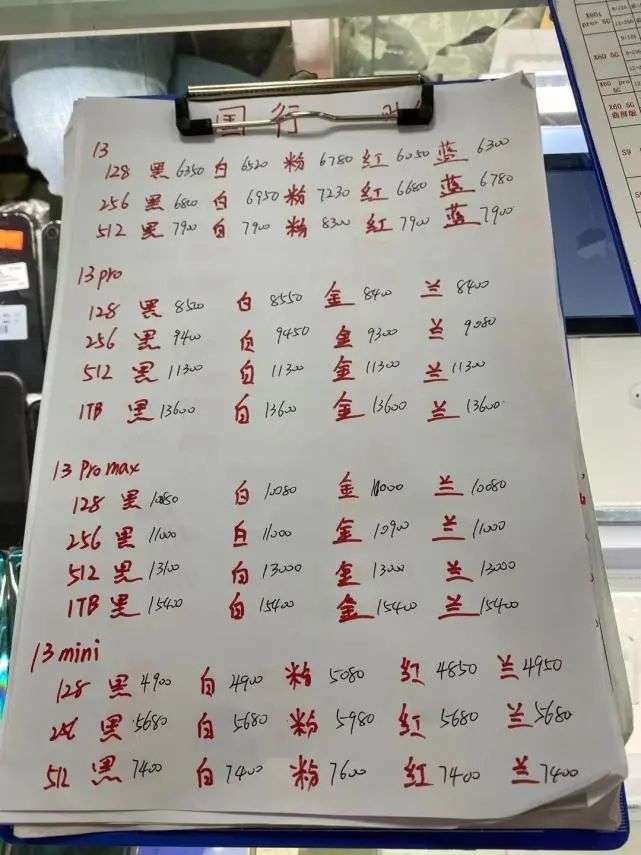 国行
13
128 黑 6350 白 6520 粉 6780 红 6050 蓝 6300
256 黑 6800 白 6950 粉 7230 红 6680 蓝 6780
512 黑 7900 白 7900 粉 8300 红 7900 蓝 7900
13 pro
128 黑 8520 白 8550 金 8400 兰 8400
256 黑 9400 白 9450 金 9300 兰 9080
512 黑 11300 白 11300 金 11300 兰 11300
1TB 黑 13600 白 13600 金 13600 兰 13600
13 Pro max
128 黑 10080 白 10080 金 10000 兰 10080
256 黑 11000 白 11000 金 10900 兰 11000
512 黑 13100 白 13000 金 13000 兰 13000
1TB 黑 15400 白 15400 金 15400 兰 15400
13 mini
128 黑 4900 白 4900 粉 5080 红 4850 兰 4950
256 黑 5680 白 5680 粉 5980 红 5680 兰 5680
512 黑 7400 白 7400 粉 7600 红 7400 兰 7400
X60 5G
X60 pro 5G
X60 5G